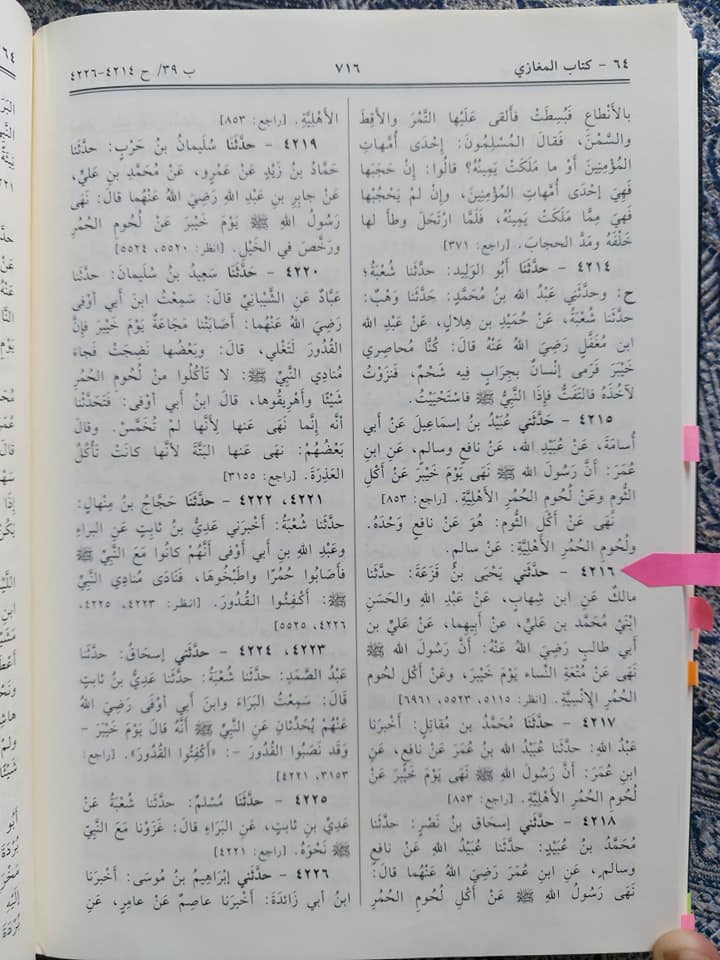 ٦٤ - كتاب المغازي
٧١٦
ب ٣٩/ ح ٤٢١٤-٤٢٢٦
بالأَنْطاعِ فَبُسِطَتْ فألقى عَلَيْها التَّمْرَ والأَقِطَ
والسَّمْنَ، فَقالَ المُسْلِمُونَ: إحْدَى أُمَّهاتِ
المُؤْمِنِينَ أوْ ما مَلَكَتْ يَمِينُهُ؟ قالُوا: إنْ حَجَبَها
فَهِيَ إحْدَى أُمَّهاتِ المُؤْمِنِينَ، وإنْ لمْ يَحْجُبْها
فَهِيَ مِمَّا مَلَكَتْ يَمِينُهُ، فَلَمَّا ارْتَحَلَ وطأ لها
خَلْفَهُ ومَدَّ الحجابَ. [راجع: ٣٧١]
٤٢١٤ - حدَّثَنا أبُو الوَلِيدِ: حدَّثَنا شُعْبَةُ؛
ح: وحدَّثَنِي عَبْدُ الله بنُ مُحَمَّدٍ: حَدَّثَنا وَهْبٌ:
حدَّثَنا شُعْبَةُ، عَنْ حُمَيْدِ بنِ هِلالٍ، عَنْ عَبْدِ الله
ابنِ مُغَفَّلٍ رَضِيَ اللهُ عَنْهُ قالَ: كُنَّا مُحاصِرِي
خَيْبَرَ فَرَمى إنْسانٌ بِجِرَابٍ فِيه شَحْمٌ، فَنَزَوْتُ
لآخُذَهُ فالتَفَتُّ فإذَا النَّبِيُّ ﷺ فاسْتَحْيَيْتُ.
٤٢١٥ - حَدَّثَنِي عُبَيْدُ بنُ إسْماعِيلَ عَنْ أبي
أُسامَةَ، عَنْ عُبَيْدِ الله، عَنْ نافِعٍ وسالمٍ، عَنِ ابنِ
عُمَرَ: أنَّ رَسُولَ اللهِ ﷺ نَهَى يَوْمَ خَيْبَرَ عَنْ أَكْلِ
الثُّومِ وعَنْ لُحُومِ الحُمُرِ الأَهْلِيَّةِ. [راجع: ٨٥٣]
نَهَى عَنْ أكْلِ الثُّومِ: هُوَ عَنْ نافعٍ وَحْدَهُ.
ولُحُومِ الحُمُرِ الأَهْلِيَّةِ: عَنْ سالِمٍ.
٤٢١٦ - حدَّثَنِي يَحْيَى بنُ قَزَعَةَ: حدَّثَنا
مالكٌ عَنِ ابنِ شِهابٍ، عَنْ عَبْدِ اللهِ والحَسَنِ
ابْنَيْ مُحَمَّدِ بن عَلِيٍّ، عَنْ أبِيهما، عَنْ عَلِيِّ بنِ
أبي طالِبٍ رَضِيَ اللهُ عَنْهُ: أنَّ رَسُولَ اللهِ ﷺ
نَهَى عَنْ مُتْعَةِ النِّساء يَوْمَ خَيْبَرَ، وعَنْ أكْلِ لحُومِ
الحُمُرِ الإنْسِيَّةِ. [انظر: ٥١١٥، ٥٥٢٣، ٦٩٦١]
٤٢١٧ - حدَّثَنا مُحَمَّدُ بنُ مُقاتِلٍ: أخْبَرَنا
عَبْدُ اللهِ: حدَّثَنا عُبَيْدُ اللهِ بنُ عُمَرَ عَنْ نافعٍ، عَنِ
ابنِ عُمَرَ: أنَّ رَسُولَ اللهِ ﷺ نَهَى يَوْمَ خَيْبَرَ عَنْ
لُحُومِ الحُمُرِ الأَهْلِيَّةِ. [راجع: ٨٥٣]
٤٢١٨ - حدَّثَنِي إسْحَاقُ بنُ نَصْرٍ: حَدَّثَنا
مُحَمَّدُ بنُ عُبَيْدٍ: حدَّثَنا عُبَيْدُ اللهِ عَنْ نافعٍ
وسالمٍ، عَنِ ابنِ عُمَرَ رَضِيَ اللهُ عَنْهُما قالَ:
نَهَى رَسُولُ اللهِ ﷺ عَنْ أكْلِ لُحُومِ الحُمُرِ
الأَهْلِيَّةِ. [راجع: ٨٥٣]
٤٢١٩ - حدَّثَنَا سُلَيمانُ بنُ حَرْبٍ: حدَّثَنا
حَمَّادُ بنُ زَيْدٍ عَنْ عَمْرٍو، عَنْ مُحَمَّدِ بنِ عَلِيٍّ،
عَنْ جابِرِ بنِ عَبْدِ اللهِ رَضِيَ اللهُ عَنْهُما قالَ: نَهَى
رَسُولُ اللهِ ﷺ يَوْمَ خَيْبَرَ عَنْ لُحُومِ الحُمُرِ
ورَخَّصَ في الخَيْلِ. [انظر: ٥٥٢٠، ٥٥٢٤]
٤٢٢٠ - حَدَّثَنَا سَعِيدُ بنُ سُلَيمانَ: حدَّثَنا
عَبَّادٌ عَنِ الشَّيْبانِيِّ قالَ: سَمِعْتُ ابنَ أبي أوْفَى
رَضِيَ اللهُ عَنْهُما: أصَابَتْنا مَجَاعَةٌ يَوْمَ خَيْبَرَ فإنَّ
القُدُورَ لَتَغْلي، قالَ: وبَعْضُها نَضِجَتْ فَجاءَ
مُنادِي النَّبِيِّ ﷺ: لا تَأْكُلُوا مِنْ لُحُومِ الحُمُرِ
شَيْئًا وأهْرِيقُوها، قالَ ابنُ أبي أوْفَى: فَتَحَدَّثْنا
أنَّه إنَّما نَهَى عَنها لأَنَّها لمْ تُخَمَّسْ. وقالَ
بَعْضُهُمْ: نهَى عَنها البَتَّةَ لأَنَّها كانَتْ تَأْكُلُ
العَذِرَةَ. [راجع: ٣١٥٥]
٤٢٢١، ٤٢٢٢ - حدَّثَنَا حَجَّاجُ بنُ مِنْهالٍ:
حدَّثَنا شُعْبَةُ: أخْبرَنِي عَدِيُّ بنُ ثابِتٍ عَنِ البراءِ
وعَبْدِ اللهِ بنِ أبي أوْفَى أنَّهُمْ كانُوا مَعَ النَّبِيِّ ﷺ
فأصَابُوا حُمُرًا واطَّبَخُوهَا، فَنَادَى مُنَادِي النَّبِيِّ
ﷺ: أكْفِئُوا القُدُورَ. [انظر: ٤٢٢٣، ٤٢٢٥،
٤٢٢٦، ٥٥٢٥]
٤٢٢٣، ٤٢٢٤ - حدَّثَنِي إسْحاقُ: حدَّثَنا
عَبْدُ الصَّمَدِ: حدَّثَنا شُعْبَةُ: حدَّثَنا عَدِيُّ بنُ ثابِتٍ
قَالَ: سَمِعْتُ البَرَاءَ وابنَ أبي أوْفَى رَضِيَ اللهُ
عَنْهُمْ يُحَدِّثانِ عَنِ النَّبِيِّ ﷺ أنَّهُ قالَ يَوْمَ خَيْبَرَ -
وَقَد نَصَبُوا القُدُورَ -: «أكْفِئُوا القُدُورَ». [راجع:
٣١٥٣، ٤٢٢١]
٤٢٢٥ - حدَّثَنَا مُسْلِمٌ: حدَّثَنا شُعْبَةُ عَنْ
عَدِيِّ بنِ ثابتٍ، عَنِ البَرَاءِ قالَ: غَزَوْنا مَعَ النَّبِيِّ
ﷺ نَحْوَهُ. [راجع: ٤٢٢١]
٤٢٢٦ - حدَّثَنِي إبْراهِيمُ بنُ مُوسَى: أخْبَرَنا
ابنُ أبي زَائِدَةَ: أخْبَرَنا عاصمٌ عَنْ عامِرٍ، عَنِ